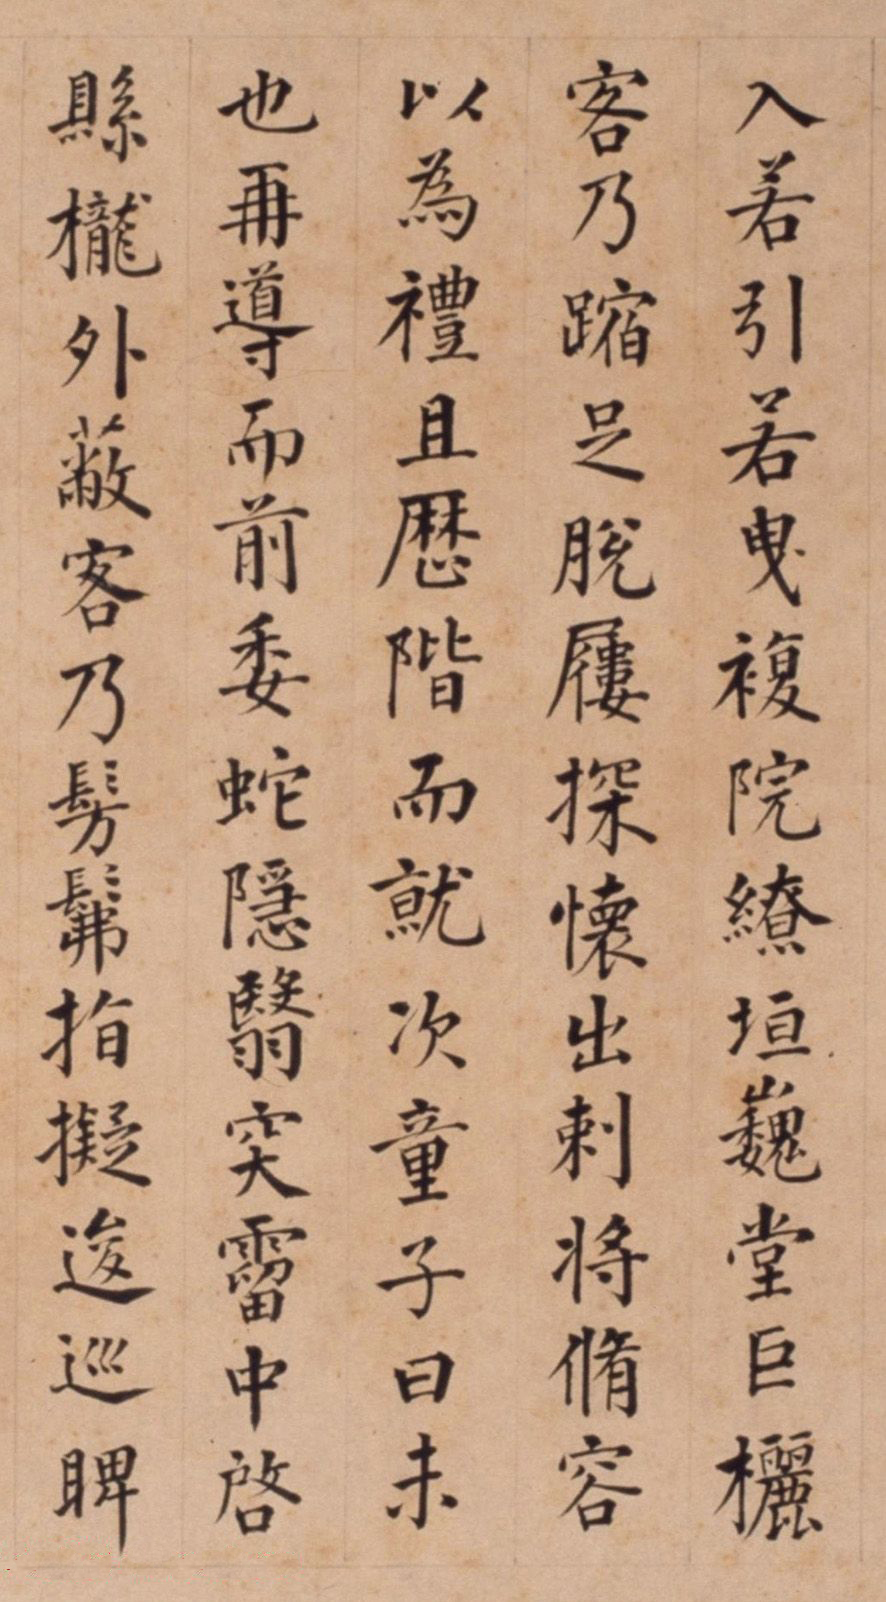 入若引若曳複院繚垣巍堂巨欐
客乃蹜足脫屨探懷出刺將脩容
以為禮且歷階而就次童子曰未
也再導而前委蛇隱翳突霤中啓
縣櫳外蔽客乃髣髴指擬逡巡睥